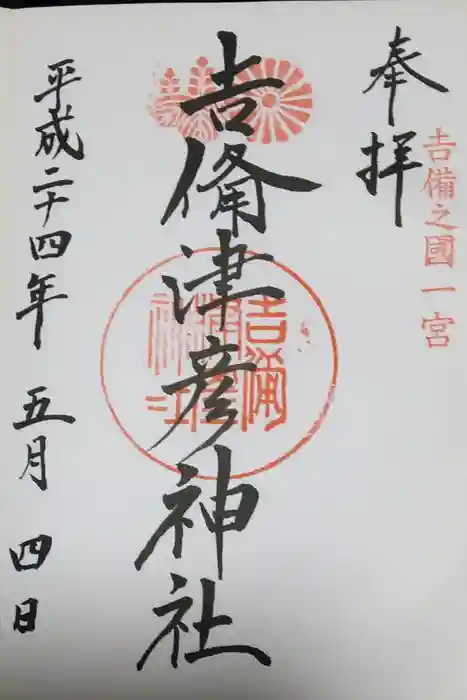 奉拝
吉備之國一宮
吉備津彦神社
平成二十四年 五月 四日
吉備津彦神社